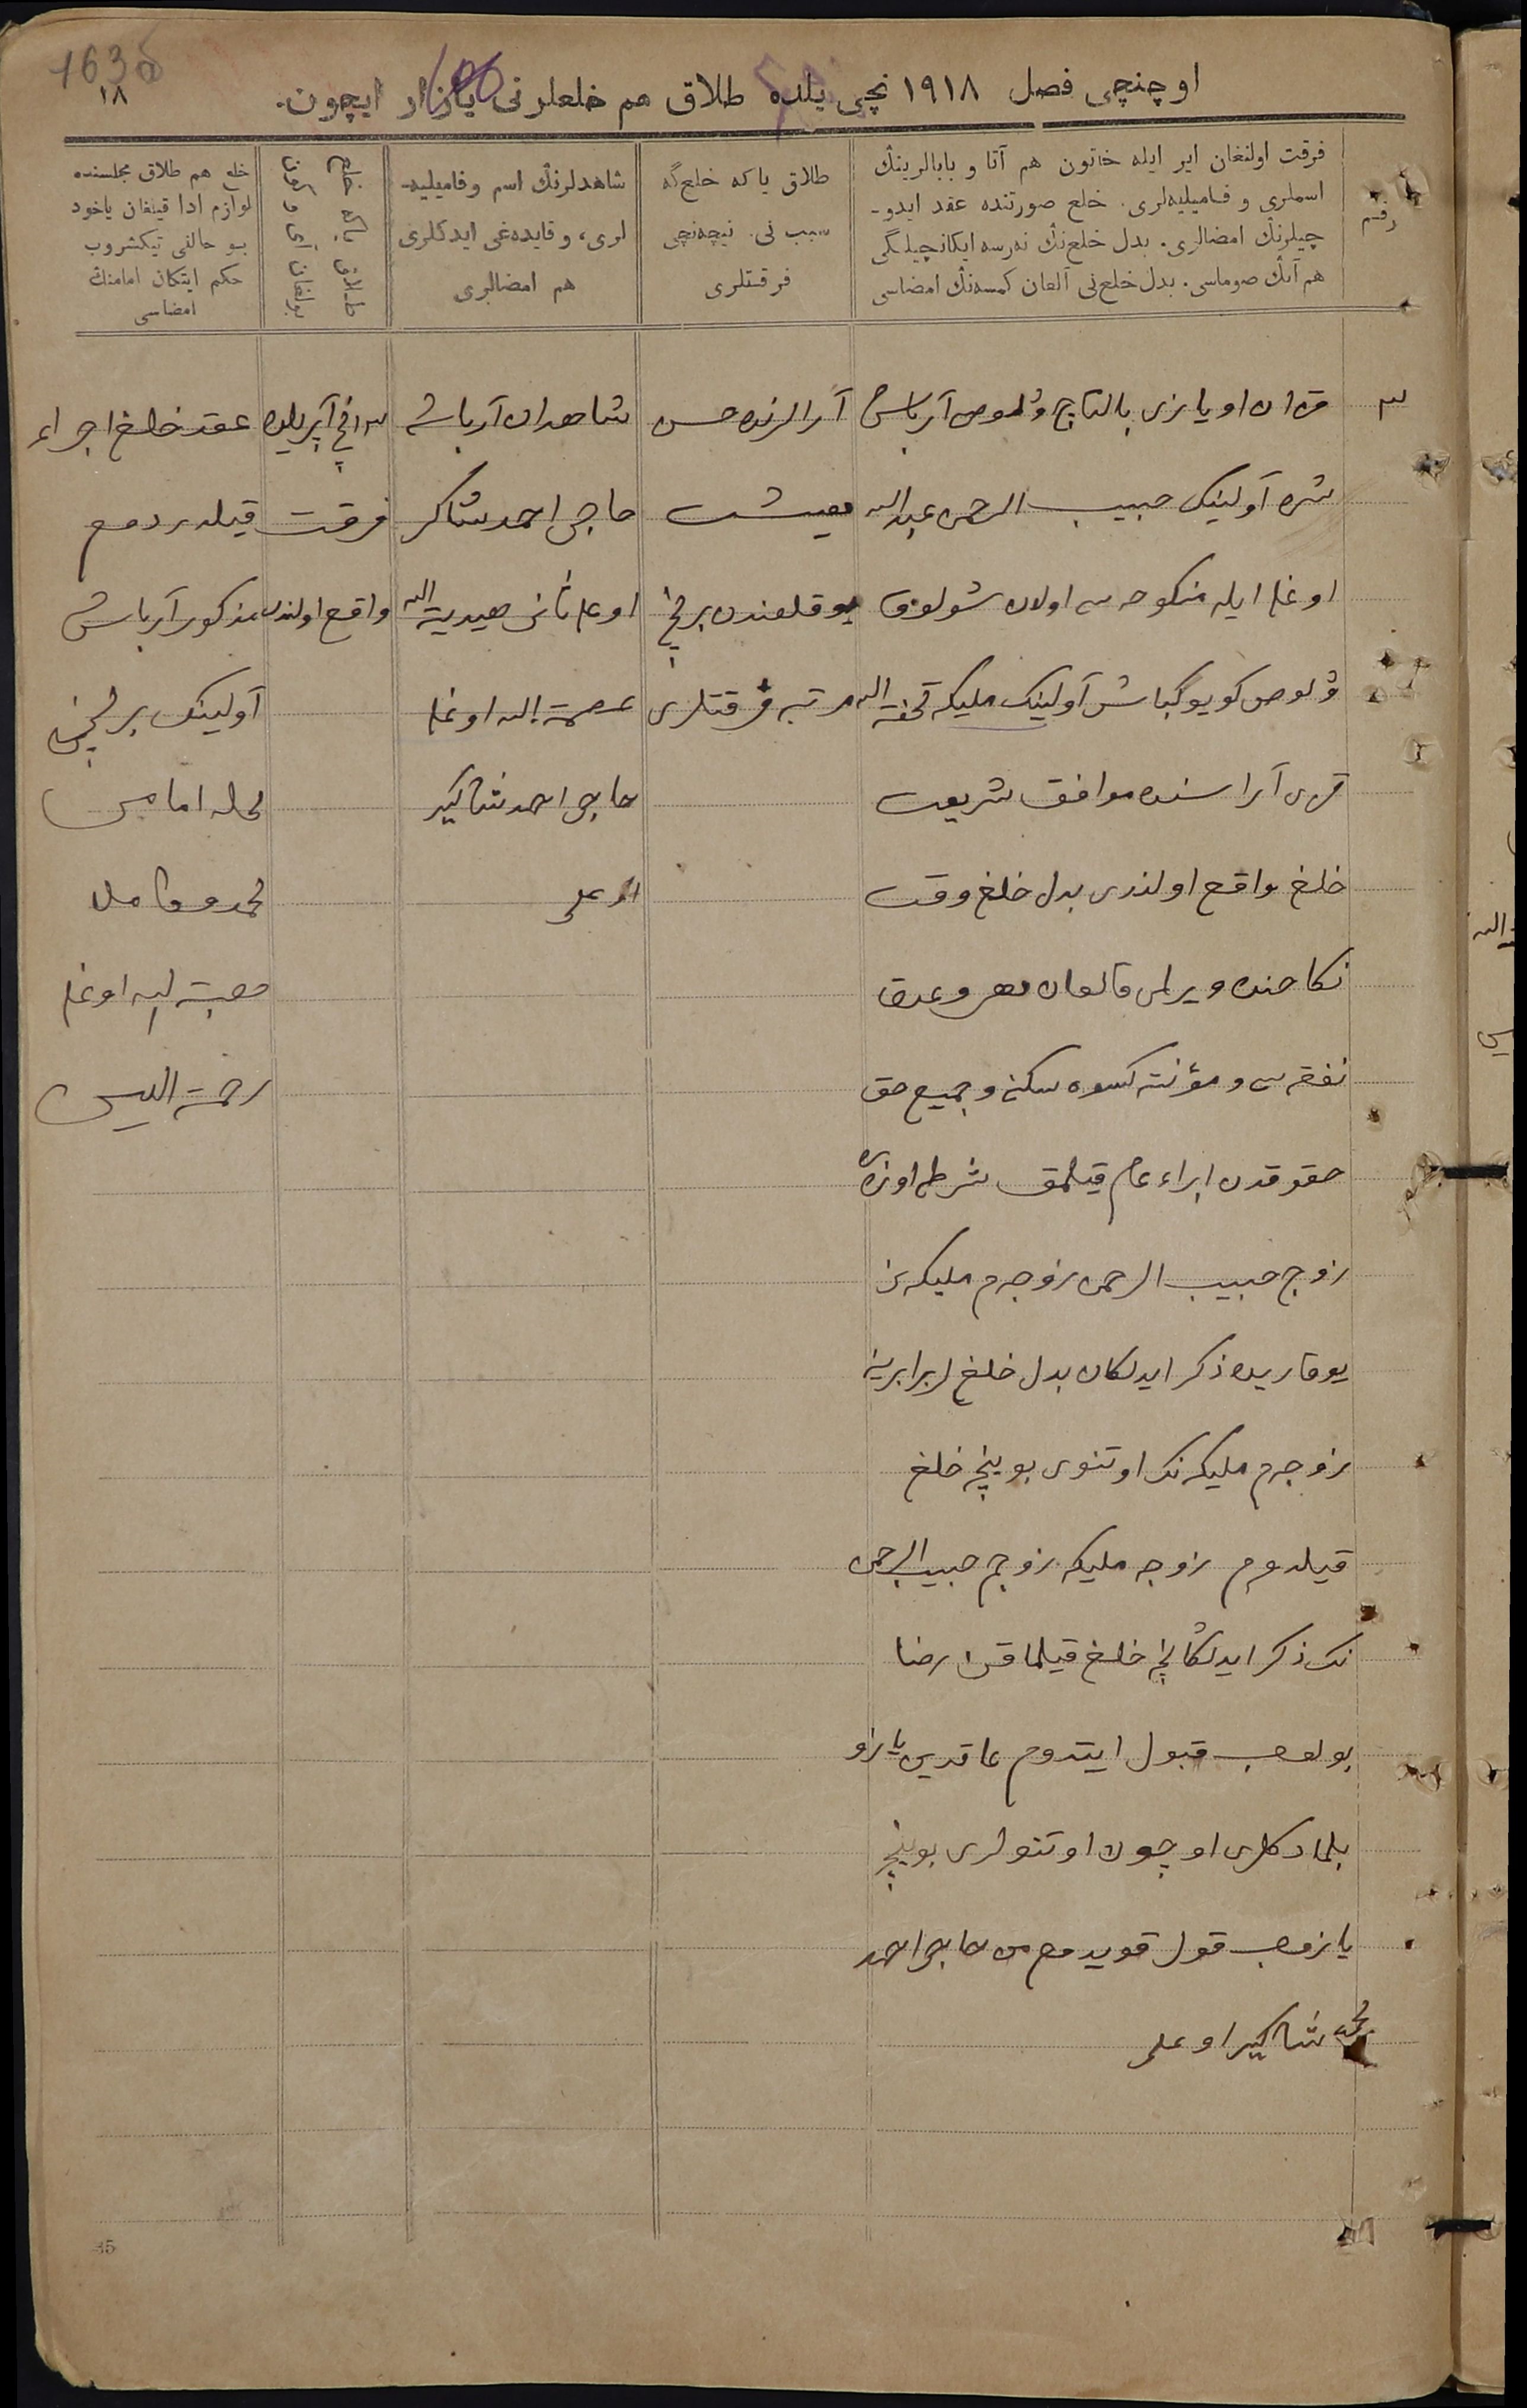 1635
١٨
اوچنچی فصل ١٩١٨ نچی یلده طلاق هم خلعلرنی یازار ایچون.
رقم
فرقت اولنغان ایر ایله خاتون هم آتا و بابالرینڭ
اسملری و فامیلیه‌لری. خلع صورتنده عقد ایدو-
چیلرنڭ امضالری. بدل خلع‌نڭ نه‌رسه ایکانچیلگی
هم آنڭ صوماسی. بدل خلع‌نی آلغان کمسه‌نڭ امضاسی
طلاق یا که خلع‌گه
سبب نی. نیچه‌نچی
فرقتلری
شاهدلرنڭ اسم و فامیلیه-
لری، و قایده‌غی ایدکلری
هم امضالری
طلاق یاکه خلع
بولغان آی و کون
خلع هم طلاق مجلسنده
لوازم ادا قیلغان یاخود
بو حالنی تیکشروب
حکم ایتکان امامنڭ
امضاسی
٣
قزان اویازی بالتاچ ولوص آرباش
شره آولینیک حبیب الرحمن عبدالله
اوغلی ایله منکوحه سی اولان شولوق
ولوص کویوکباش آولینیک ملیکه تحفة الله
قزی آراسنده موافق شریعت
خلع واقع اولندی بدل خلع وقت
نکاحنده ویرلمی قالغان مهر و عدة
نفقه سی و مؤنت کسوه سکنی و جمیع حق
حقوقدن ابراء عام قیلمق شرطی اوزره
زوج حبیب الرحمن زوجه م ملیکه نی
یوقاریده ذکر ایدلکان بدل خلع برابرینه
زوجه م ملیکه نک اوتنوی بوینچه خلع
قیلدم زوجه ملیکه زوجم حبیب الرحمن
نک ذکر ایدلکانچه خلع قیلماقن رضا
بولوب قبول ایتدوم عاقدین یازو
بلمادکلری اوچون اوتنولری بوینچه
یازوب قول قویدم من حاجی احمد
محمد شاکیر اوغلی
آرالرنده حسن
معیشت
یوقلغندن برنچی
مرتبه فرقتلری
شاهدان آرباش
حاجی احمد شاکر
اوغلی ثانی هدیة الله
عصمة الله اوغلی
حاجی احمد شاکیر
اوغلی
٣ نچی آپریلده
فرقت
واقع اولندی
عقد خلع اجراء
قیلدردم
مذکور آرباش
آولینک برنچی
محله امامی
محمد کامل
محبة الله اوغلی
رحمة الله
35